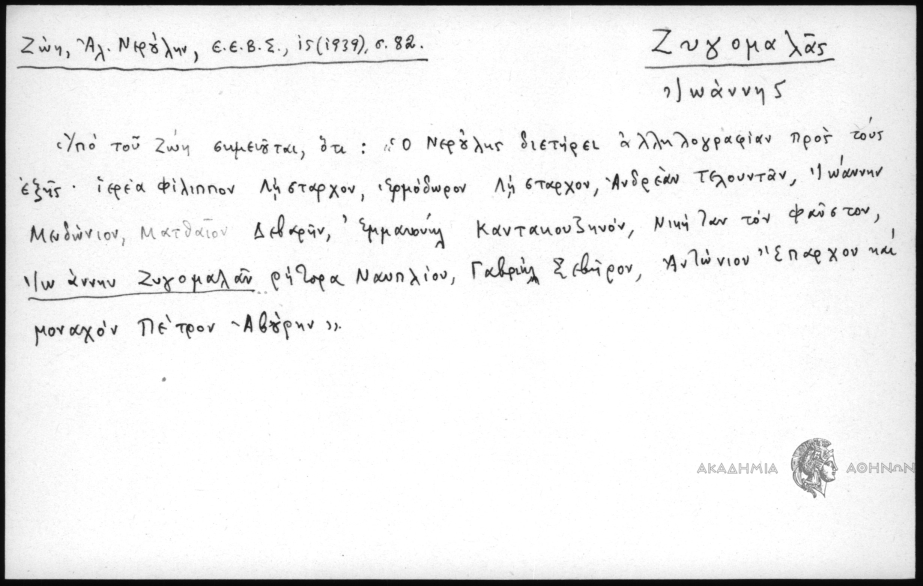 Ζώη, Ἀλ. Νερούλην, Ε.Ε.Β.Σ., ιε (1939), σ. 82.
Ζυγομαλᾶς
Ἰωάννης
Ὑπὸ τοῦ Ζώη σημειοῦται, ὅτι : «Ὁ Νερούλης διετήρει ἀλληλογραφίαν πρὸς τοὺς
ἑξῆς· ἱερέα Φίλιππον Λήσταρχον, Ἑρμόδωρον Λήσταρχον, Ἀνδρέαν Τελουντᾶν, Ἰωάννην
Μινδώνιον, Ματθαῖον Δεβαρῆν, Ἐμμανουὴλ Καντακουζηνόν, Νικήταν τὸν Φαῦστον,
Ἰωάννην Ζυγομαλᾶν ῥήτορα Ναυπλίου, Γαβριὴλ Σεβῆρον, Ἀντώνιον Ἔπαρχον καὶ
μοναχὸν Πέτρον Ἀβούρην».
ΑΚΑΔΗΜΙΑ ΑΘΗΝΩΝ